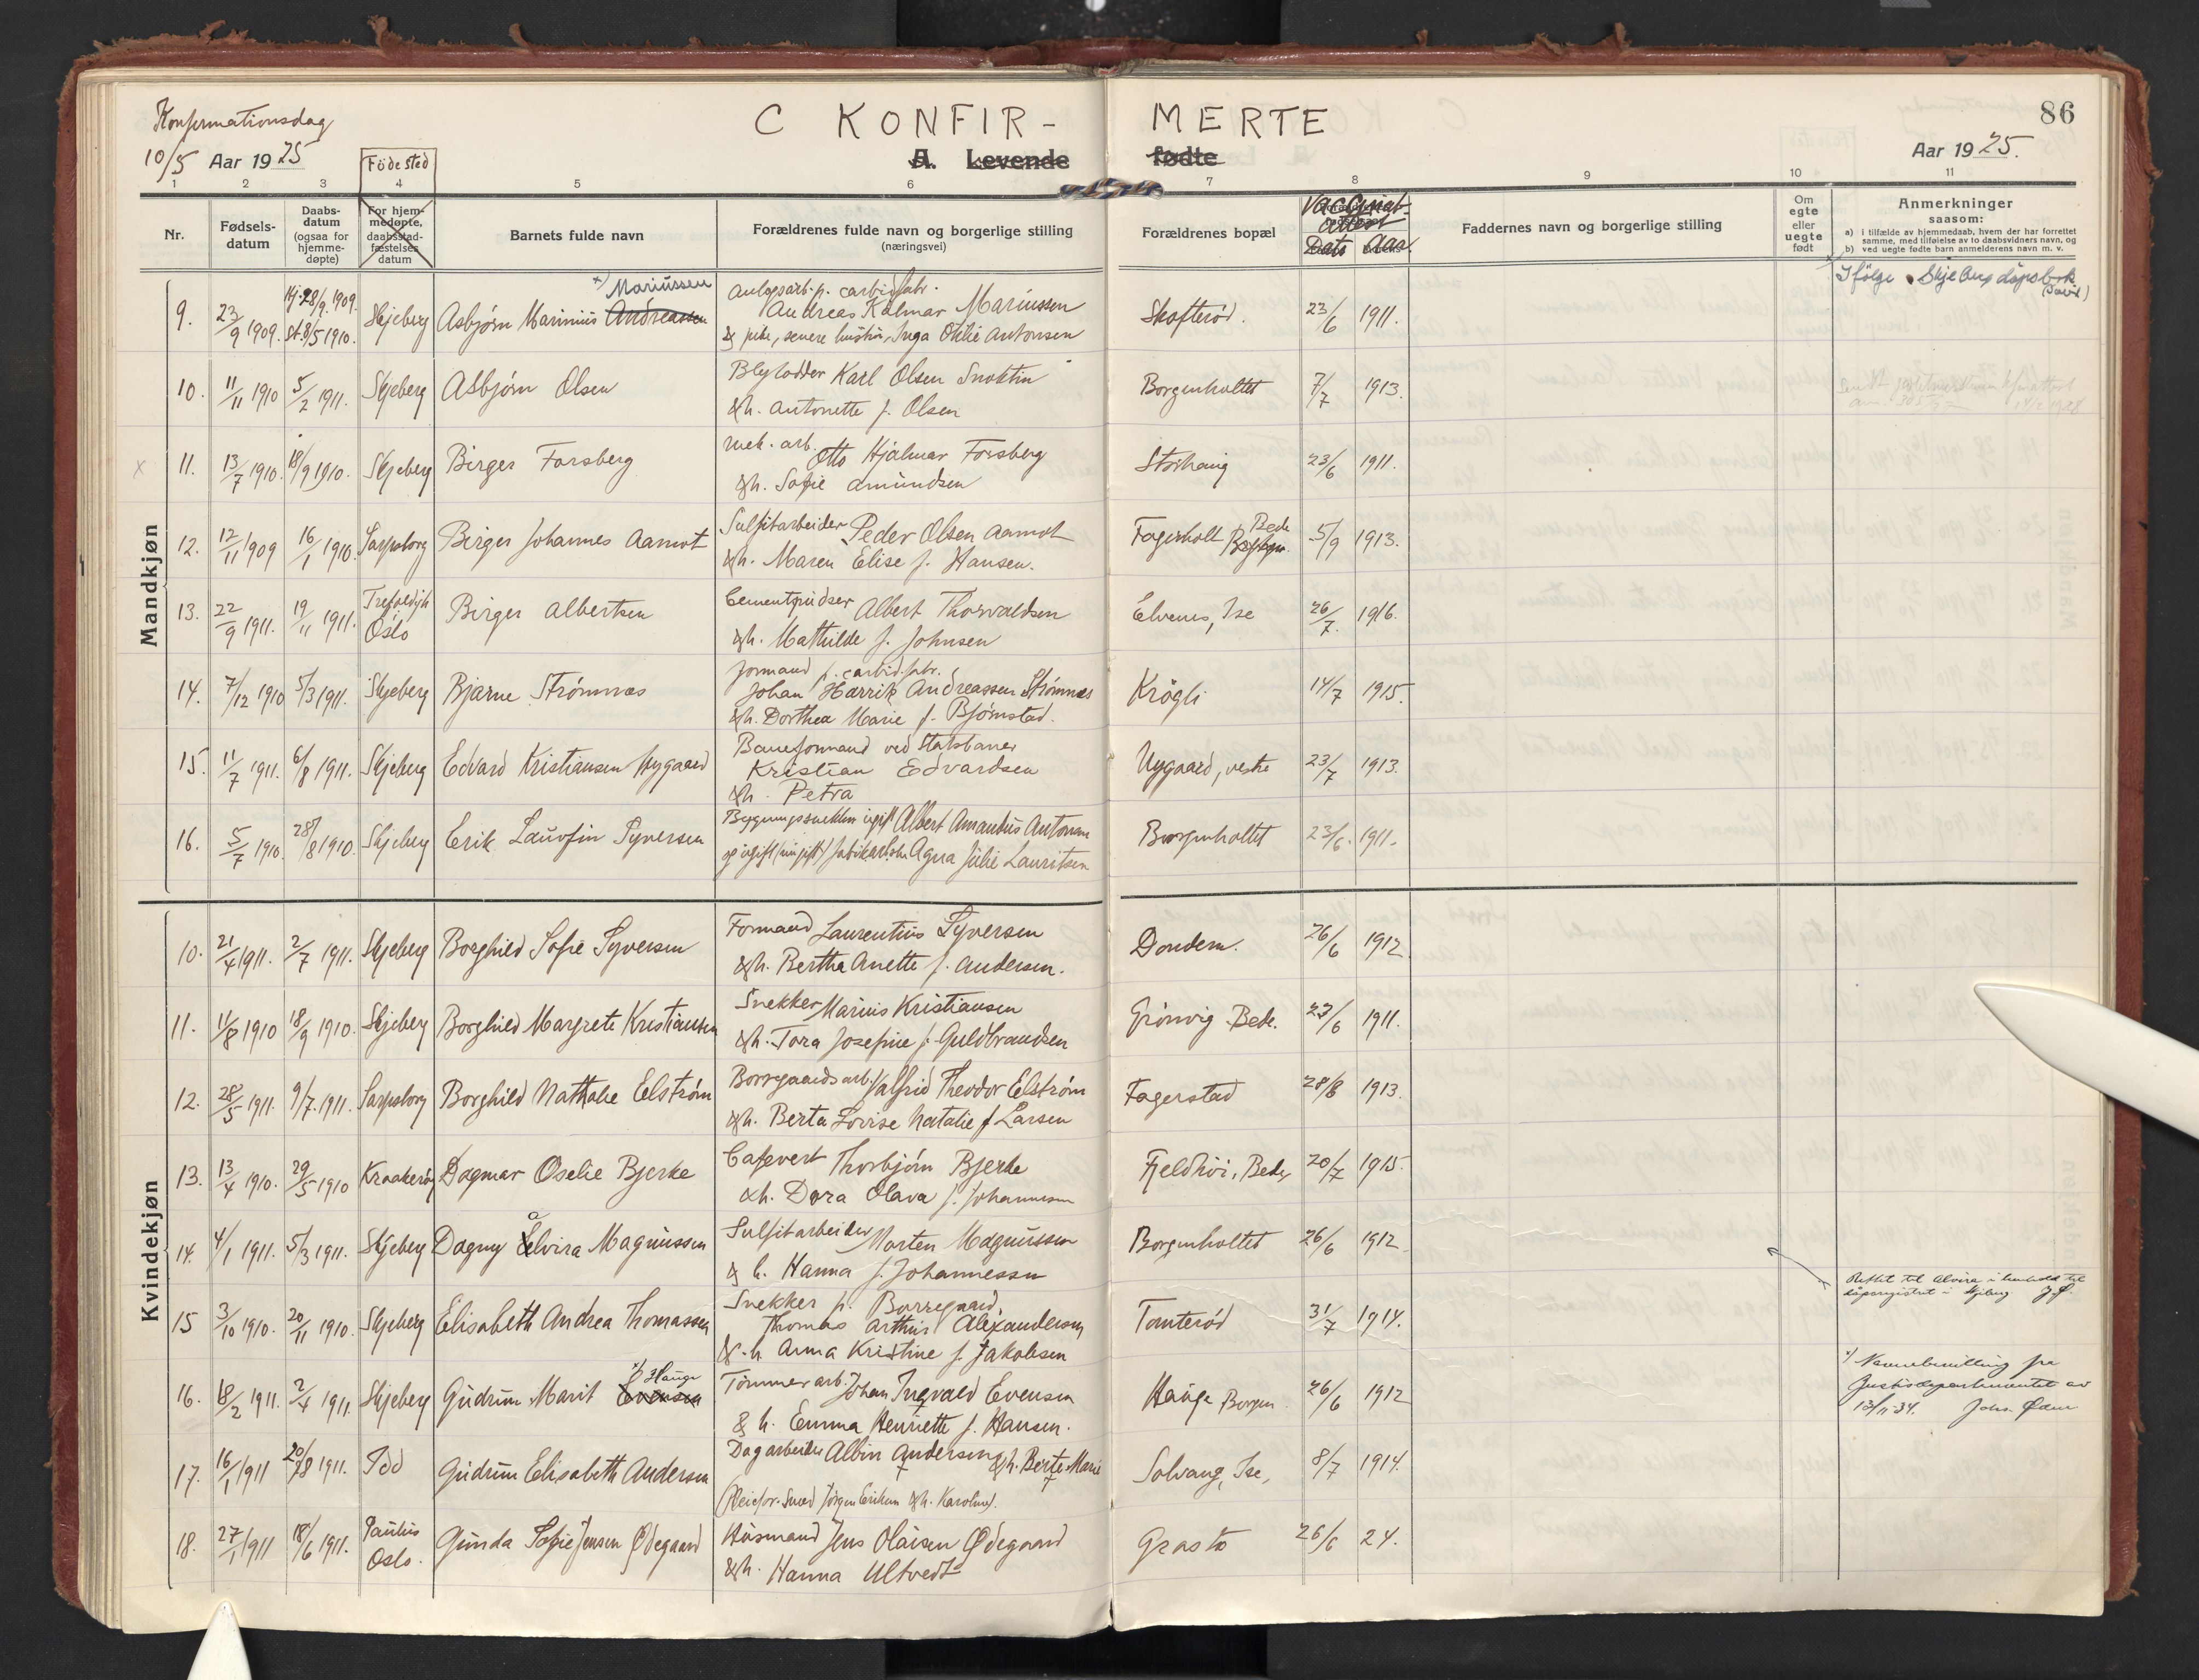 Konfirmationsdag
10/5 Aar 1925
C KONFIR-MERTE
A. Levende fødte
86
Aar 1925.
Födested
1 2 3 4 5 6 7 8 9 10 11
Nr.
Fødselsdatum
Daabsdatum (ogsaa for hjemmedøpte)
For hjemmedøpte, daabsstadfæstelses datum
Barnets fulde navn
Forældrenes fulde navn og borgerlige stilling
(næringsvei)
Forældrenes bopæl
Dato Aar
Faddernes navn og borgerlige stilling
Om egte eller uegte født
Anmerkninger
saasom:
a) i tilfælde av hjemmedaab, hvem der har forrettet samme, med tilføielse av to daabsvidners navn, og
b) ved uegte fødte barn anmelderens navn m. v.
Mandkjøn
9. 23/9 1909. Hj. 28/9 1909. St. 8/5 1910. Skjeberg Asbjørn Marinius Andreassen x) Mariussen
Andreas Kalmar Mariussen
senere hustru, Inga Otilie Antonsen
Skofterød. 23/6 1911.
Ifölge Skjeberg dåpsbok
10. 11/11 1910 5/2 1911. Skjeberg Asbjørn Olsen
Blylodder Karl Olsen
&h. Antonette f. Olsen
Borgenholtet 7/7 1913.
x 11. 13/7 1910. 18/9 1910. Skjeberg Birger Forsberg
mek. arb. Otto Hjalmar Forsberg
&h. Sofie Amundsen
Storhaug 23/6 1911.
12. 12/11 1909 16/1 1910. Sarpsborg Birger Johannes Aamot
Sulfitarbeider Peder Olsen Aamot
&h. Maren Elise f. Hansen.
Fagerholt Bede 5/9 1913.
13. 22/9 1911. 19/11 1911. Trefoldigh Oslo Birger Albertsen
Cementpudser Albert Thorvaldsen
&h. Mathilde f. Johnsen
Elvenes, Ise 26/7. 1916.
14. 7/12 1910 5/3 1911. Skjeberg Bjarne Strømnæs
Formand p. carbidfabr.
Johan Harrik Andreassen Strømnæs
&h. Dorthea Marie f. Bjørnstad.
Krøgli 14/7 1915.
15. 11/7 1911. 6/8 1911. Skjeberg Edvard Kristiansen Nygaard
Baneformand ved Statsbaner
Kristian Edvardsen
&h. Petra
Nygaard, vestre 23/7 1913.
16. 5/7 1910. 28/8 1910. Skjeberg Erik Laurfin Syversen
Bygningssnekker ugift Albert Amandus Antonsen
og ugift Agna Julie Lauritsen
Borgenholtet 23/6. 1911.
Kvindekjøn
10. 21/4 1911. 2/7 1911. Skjeberg Borghild Sofie Syversen
Formand Laurentius Syversen
&h. Bertha Anette f. Andersen.
Dondern. 26/6 1912.
11. 11/8 1910 18/9 1910. Skjeberg Borghild Margrete Kristiansen
Snekker Marius Kristiansen
&h. Tora Josefine f. Guldbrandsen
Grönvig Bede. 23/6 1911.
12. 28/5 1911. 9/7. 1911. Sarpsborg Borghild Nathalie Eelström
Borregaardsarb. Valfrid Theodor Eelström
&h. Berta Lovise Natalie f Larsen
Fagerstad 28/8 1913.
13. 13/4 1910. 29/5 1910 Kraakerøy Dagmar Oselie Bjerke
Cafevert Thorbjörn Bjerke
&h. Dora Olava f. Johannesen
Fjeldhöi, Bede, 20/7 1915.
14. 4/1 1911. 5/3 1911. Skjeberg Dagny Elvira Magnussen
Sulfitarbeider Morten Magnussen
& h. Hanna f. Johannessen
Borgenholtet 26/6 1912
Rettet til Alvira i henhold til
dåpsregistret i Skjeberg
15 3/10 1910. 20/11 1910. Skjeberg Elisabeth Andrea Thomassen
Snekker p. Borregaard,
Thomas Arthur Alexandersen
&.h. Anna Kristine f. Jakobsen
Tomterød 31/7 1914.
16. 18/2 1911. 2/4 1911. Skjeberg Gudrun Marit Evensen x) Hauge
Tömmerarb. Johan Ingvald Evensen
& h. Emma Henriette f. Hansen.
Hauge Borgen 26/6 1912
x) Navnebevilling fra
Justisdepartementet av
13/11-34.
17. 16/1 1911 20/8 1911. Idd Gudrun Elisabeth Andersen
Dagarbeider Albin Andersen &h. Berte Marie
(Pleiefor. Smed Jørgen Eriksen &h. Karoline).
Solvang, Ise, 8/7 1914.
18. 27/1 1911 18/6 1911. Paulus Oslo. Gunda Sofie Jensen Ødegaard
Husmand Jens Olaisen Ødegaard
&h. Hanna Ultvedt
Grasto 26/6 24.